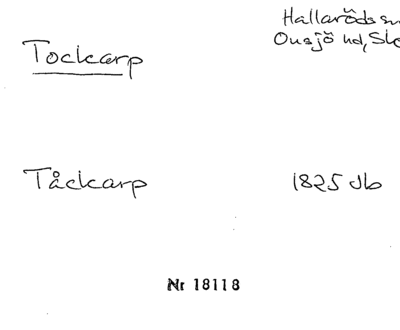 Tockarp
Hallaröds sn
Onsjö hd, Sk
Tåckarp
1825 Jb
Nr 18118